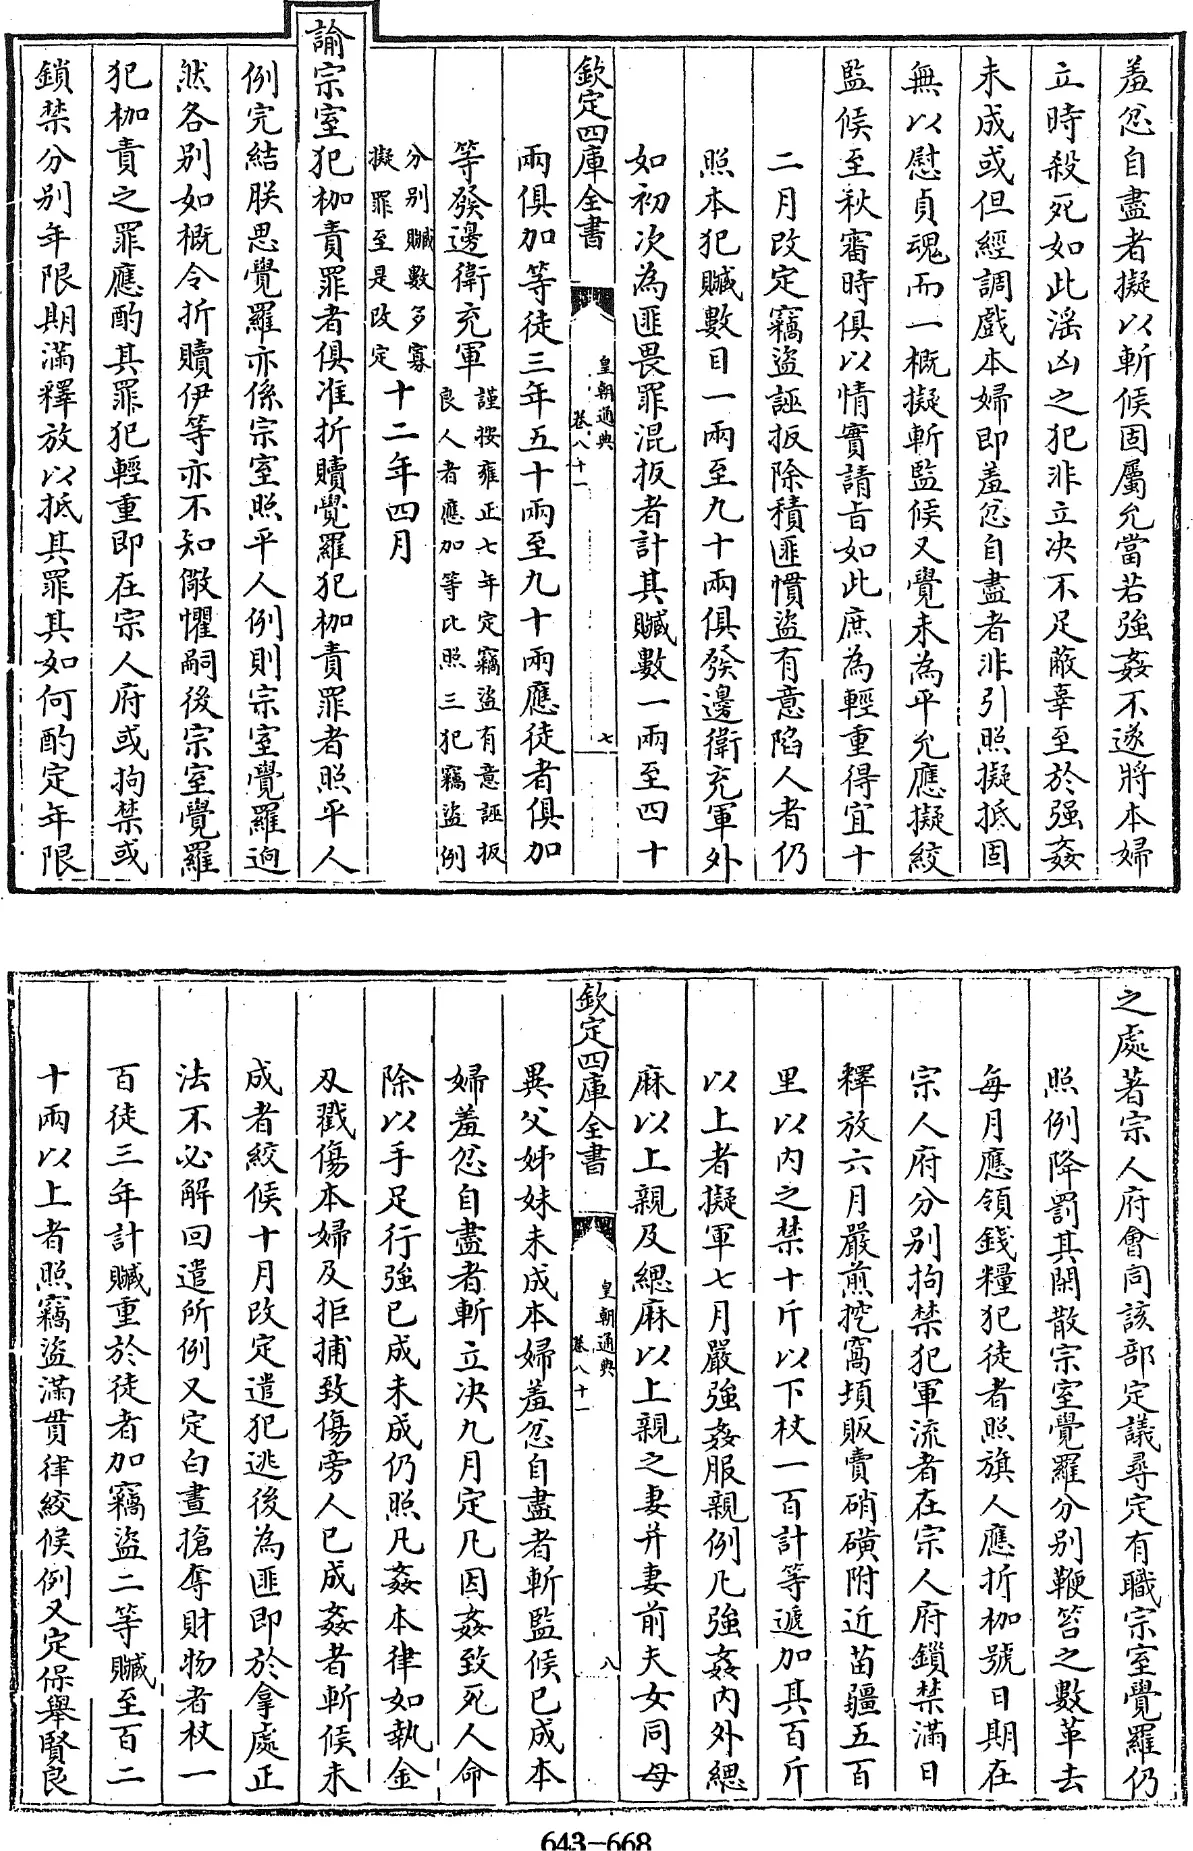 羞忿自盡者擬以斬候固屬允當若強姦不遂將本婦
立時殺死如此淫凶之犯非立決不足蔽辜至於强姦
未成或但經調戲本婦即羞忿自盡者非引照擬抵固
無以慰貞魂而一概擬斬監候又覺未為平允應擬絞
監候至秋審時俱以情實請旨如此庶為輕重得宜十
二月改定竊盜誣扳除積匪慣盜有意陷人者仍
照本犯贓數目一兩至九十兩俱發邊衛充軍外
如初次為匪畏罪混扳者計其贓數一兩至四十
欽定四庫全書
皇朝通典
卷八十一
七
兩俱加等徒三年五十兩至九十兩應徒者俱加
等發邊衛充軍
謹按雍正七年定竊盜有意誣扳
良人者應加等比照三犯竊盜例
分别贓數多寡
擬罪至是改定
十二年四月
諭宗室犯枷責罪者俱准折贖覺羅犯枷責罪者照平人
例完結朕思覺羅亦係宗室照平人例則宗室覺羅迥
然各别如概令折贖伊等亦不知儆懼嗣後宗室覺羅
犯枷責之罪應酌其罪犯輕重即在宗人府或拘禁或
鎖禁分别年限期滿釋放以抵其罪其如何酌定年限
之處著宗人府會同該部定議尋定有職宗室覺羅仍
照例降罰其閑散宗室覺羅分别鞭笞之數革去
每月應領錢糧犯徒者照旗人應折枷號日期在
宗人府分别拘禁犯軍流者在宗人府鎖禁滿日
釋放六月嚴煎挖窩頓販賣硝磺附近苗疆五百
里以内之禁十斤以下杖一百計等遞加其百斤
以上者擬軍七月嚴強姦服親例凡強姦内外緦
麻以上親及緦麻以上親之妻并妻前夫女同母
欽定四庫全書
皇朝通典
卷八十一
八
異父姊妹未成本婦羞忿自盡者斬監候已成本
婦羞忿自盡者斬立決九月定凡因姦致死人命
除以手足行強已成未成仍照凡姦本律如執金
刃戳傷本婦及拒捕致傷旁人已成姦者斬候未
成者絞候十月改定遣犯逃後為匪即於拿處正
法不必解回遣所例又定白晝搶奪財物者杖一
百徒三年計贓重於徒者加竊盜二等贓至百二
十兩以上者照竊盜滿貫律絞候例又定保舉賢良
643-668